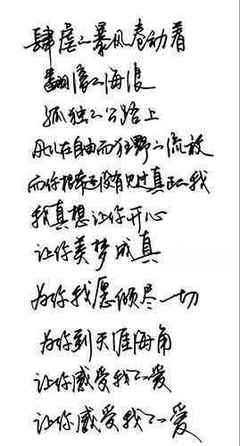 肆虐之暴风卷动着
翻滚之海浪
孤独之公路上
我以在自由而狂野之流放
而你根本还没有见过真正之我
我真想让你开心
让你美梦成真
为你我愿倾尽一切
为你到天涯海角
让你感受我之爱
让你感受我之爱